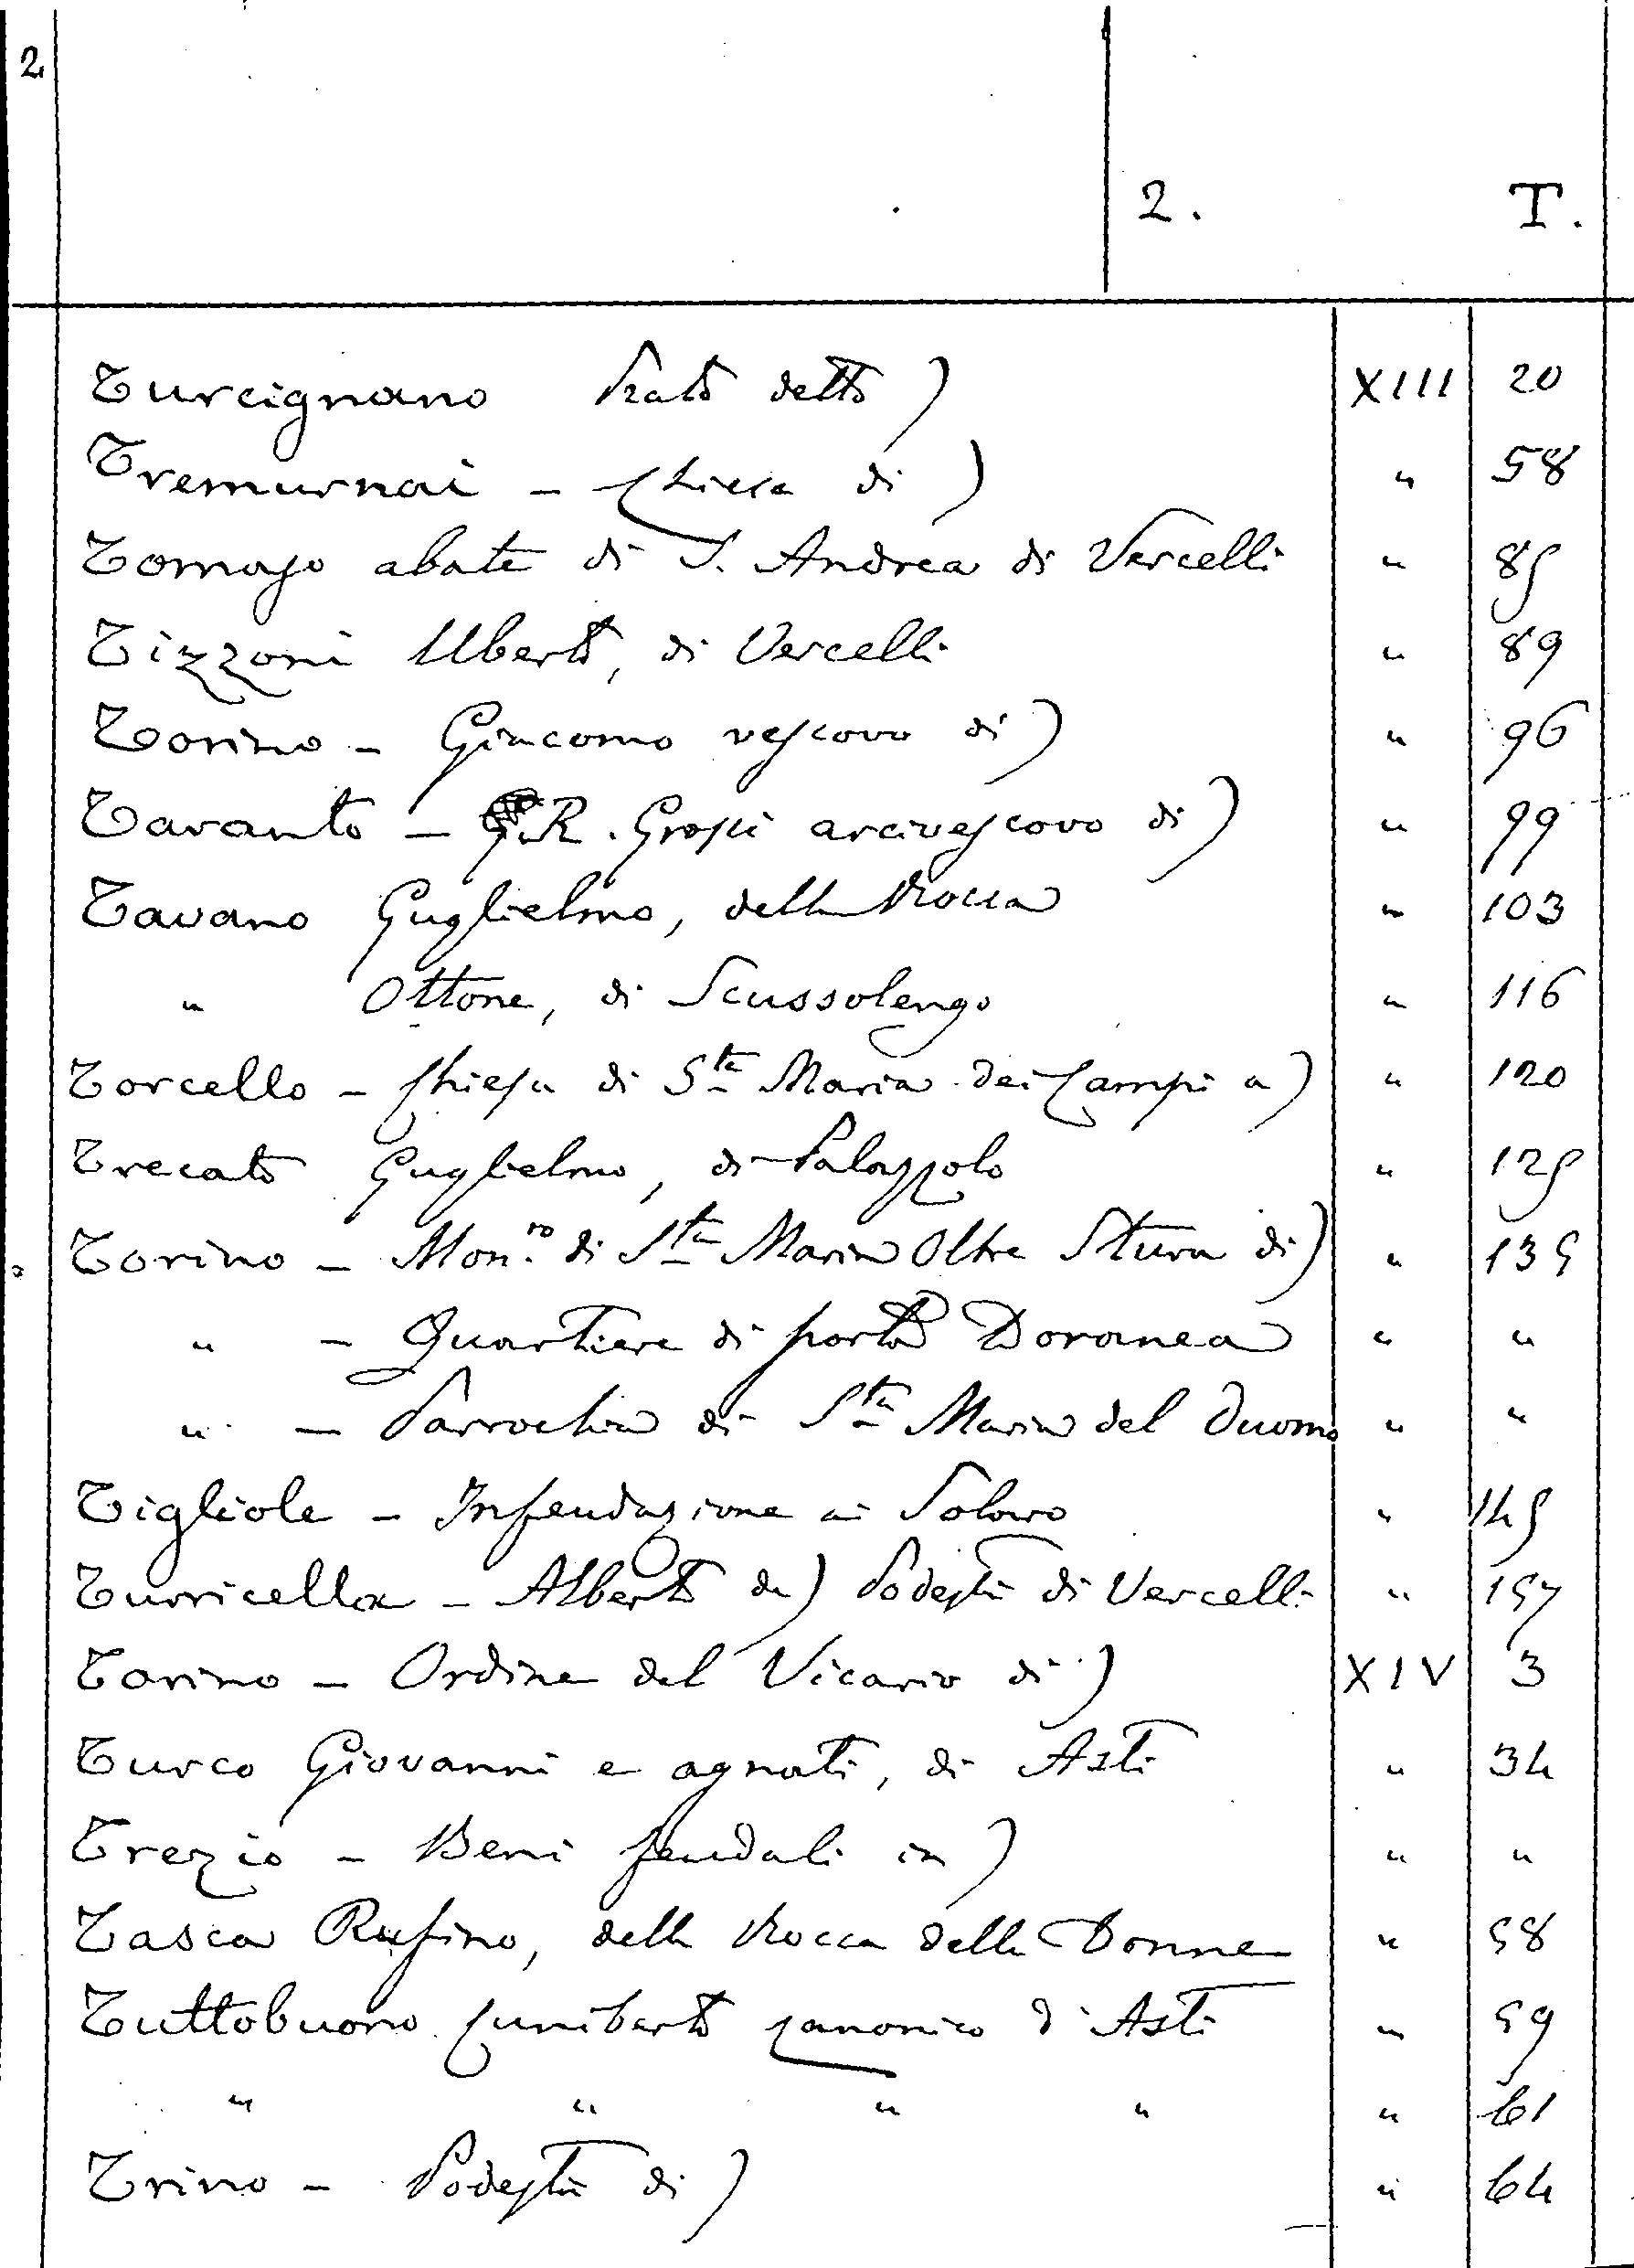 2
2. T.
Turcignano Prato detto) XIII 20
Tremurnai - Chiesa di) " 58
Tomaso abate di S. Andrea di Vercelli " 85
Tizzoni Uberto, di Vercelli " 89
Torino - Giacomo vescovo di) " 96
Taranto - R. Grossi arcivescovo di) " 99
Tavano Guglielmo, della Rocca " 103
" Ottone, di Scussolengo " 116
Torcello - Chiesa di Sta Maria dei Campi a) " 120
Trecato Guglielmo, di Palazzolo " 125
Torino - Mon.ro di Sta Maria Oltre Stura di) " 135
" - Quartiere di porta Doranea " "
" - Parrochia di Sta Maria del Duomo " "
Tigliole - Infeudazione ai Solaro " 145
Turricella - Alberto da) Podestà di Vercelli " 157
Torino - Ordine del Vicario di) XIV 3
Turco Giovanni e agnati, di Asti " 34
Trezio - Beni feudali in) " "
Tasca Rufino, della Rocca delle Donne " 58
Tuttobuono Cuniberto canonico d'Asti " 59
" " " " " 61
Trino - Podestà di) " 64